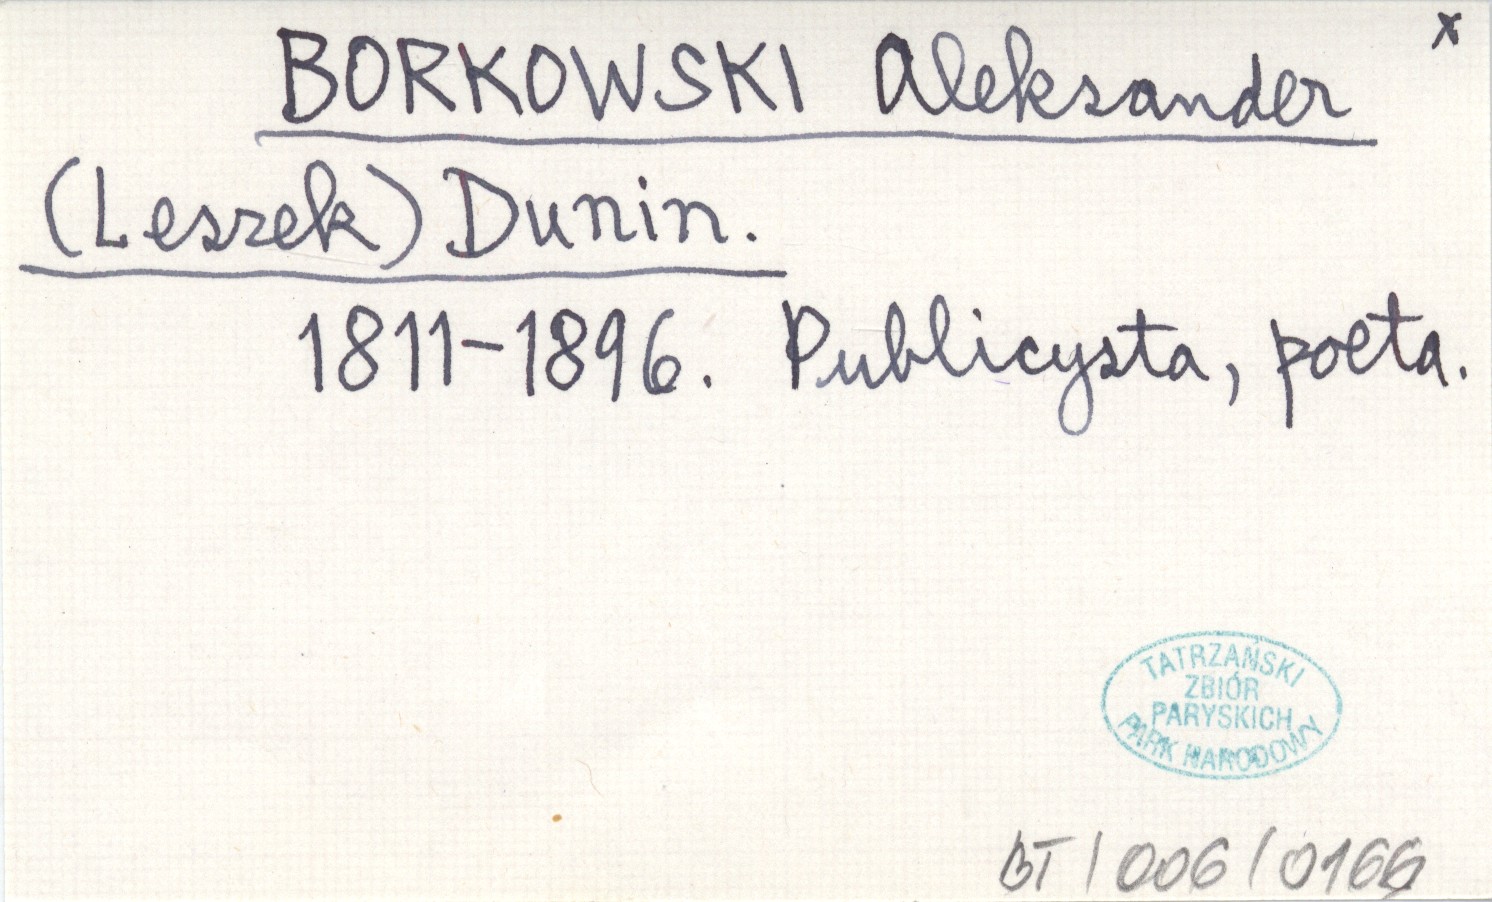 x
BORKOWSKI Aleksander
(Leszek) Dunin.
1811-1896. Publicysta, poeta.
TATRZAŃSKI
ZBIÓR
PARYSKICH
PARK NARODOWY
BT/006/0166